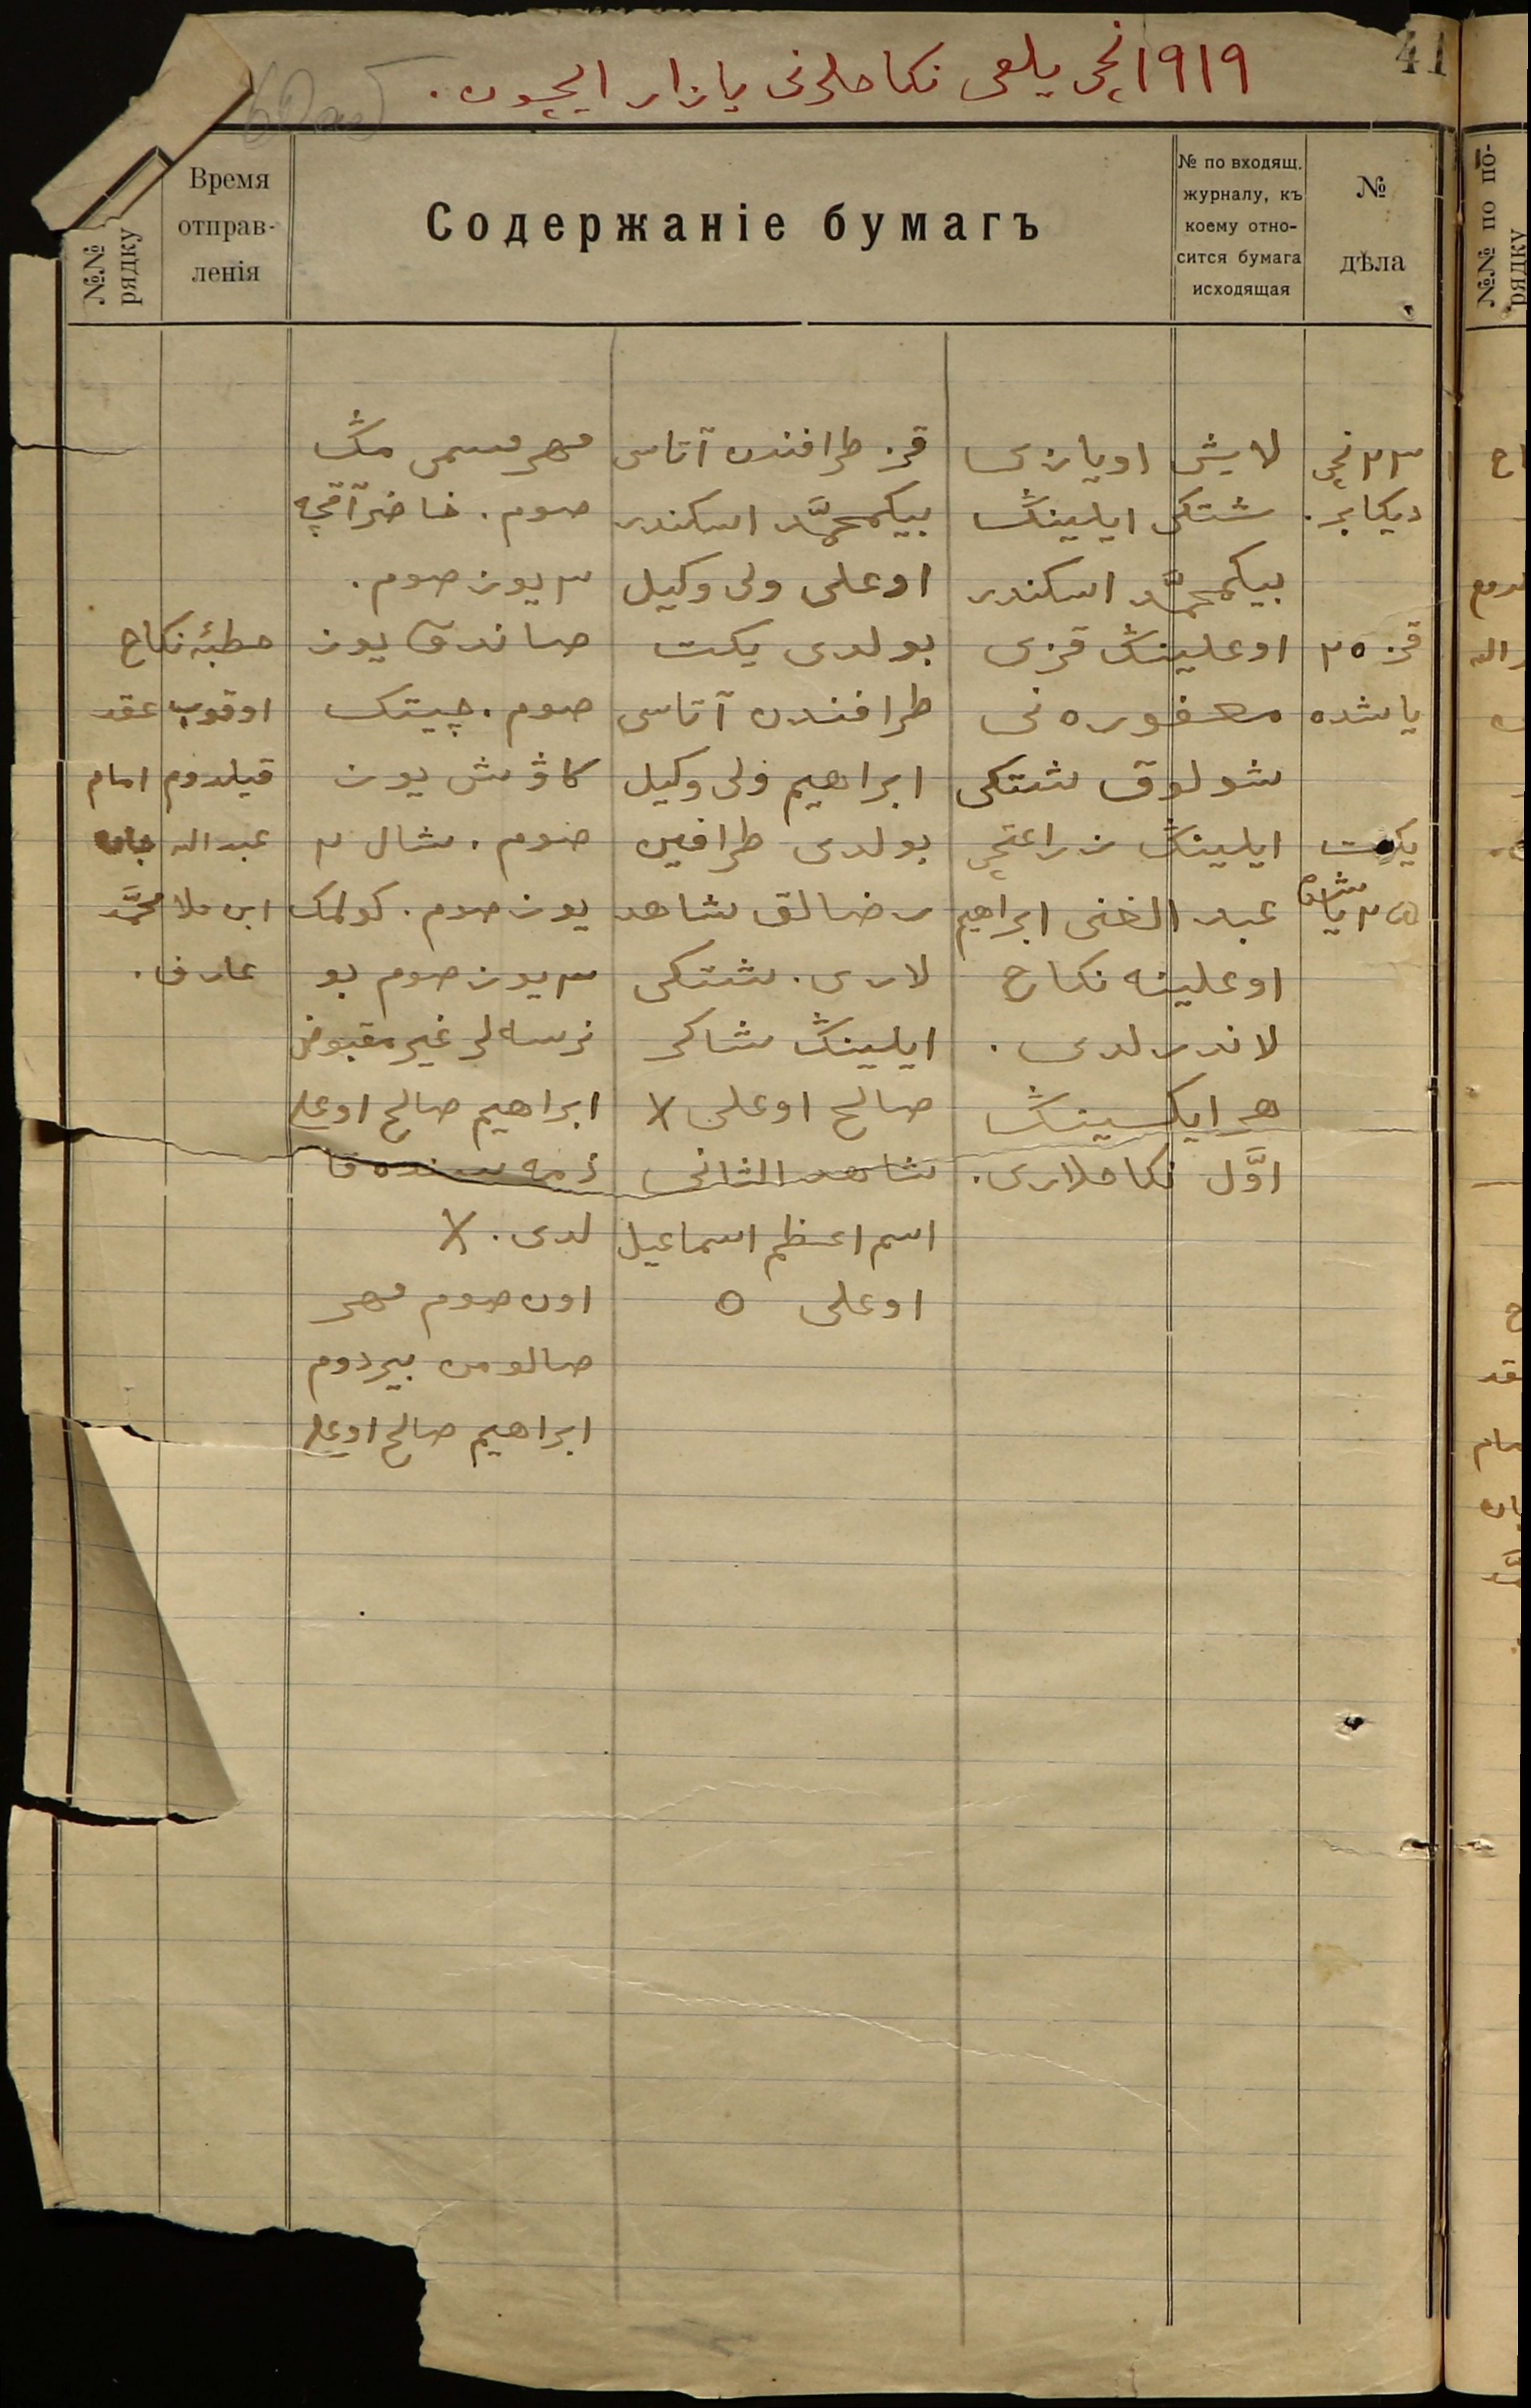 41
۱۹۱۹نچی یلغی نکاحلرنی یازار ایچون.
№№ рядку
Время отправ- ленія
Содержаніе бумагъ
№ по входящ. журналу, къ коему отно- сится бумага исходящая
№ дѣла
№№ по по- рядку
۲۳نچی
دیکابر.
قز ۲۵
یاشده
یکت
۲۵ یاش
لایش اویازی
شتکی ایلینڭ
بیکمحمَّد اسکندر
اوغلینڭ قزی
مغفوره نی
شولوق شتکی
ایلینڭ زراعتچی
عبد الغنی ابراهیم
اوغلینه نکاح
لاندرلدی.
هر ایکسینڭ
اوَّل نکاحلاری.
قز طرافندن آتاسی
بیکمحمَّد اسکندر
اوغلی ولی وکیل
بولدی یکت
طرافندن آتاسی
ابراهیم ولی وکیل
بولدی طرافین
رضالق شاهد
لاری. شتکی
ایلینڭ شاکر
صالح اوغلی X
شاهد الثانی
اسم اعظم اسماعیل
اوغلی o
مهر مسمی مڭ
صوم. خاضر آقچه
۳ یوز صوم.
صاندق یوز
صوم. چیتک
کاوش یوز
صوم. شال ۲
یوز صوم. کولمک
۳ یوز صوم بو
نرسه لر غیر مقبوض
ابراهیم صالح اوغلی
ذمه سنده قا
لدی. X
اون صوم مهر
صالومن بیردوم
ابراهیم صالح اوغلی
خطبۀ نکاح
اوقوب عقد
قیلدوم امام
عبدالله جان
ابن ملا محمَّد
عارف.